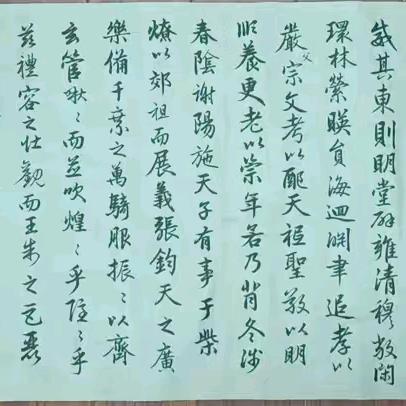 其東則明堂辟雍清穆敞閑
環林縈暎員海迴淵聿追孝以
嚴父宗文考以配天祗聖敬以明
順養更老以崇年若乃背冬涉
春陰謝陽施天子有事于柴
燎以郊祖而展義張鈞天之廣
樂備千乘之萬騎服振〻以齊
玄管啾〻而並吹煌〻乎隱〻乎
茲禮容之壯觀而王制之巨麗